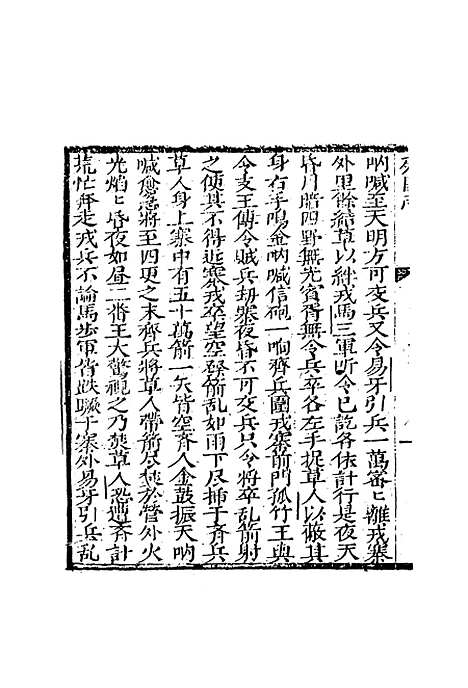 吶喊至天明方可交兵又令易牙引兵一萬密匕離戎寨
外里餘結草以絆戎馬三軍听令已訖各依計行是夜天
昏月暗四野無光賓胥無令兵卒各左手捉草人以蔽其
身右手鳴金吶喊信砲一响齊兵圍戎寨前門孤竹王與
令支王傳令賊兵刼寨夜昏不可交兵只令將卒乱箭射
之使其不得近寨戎卒望空發箭乱如雨下尽插于斉兵
草人身上寨中有五十萬箭一矢皆空斉人金鼓振天吶
喊愈急將至四更之末齊兵將草人帶箭尽焚於營外火
光焰匕昏夜如昼二畨王大驚視之乃焚草人恐遭斉計
荒忙奔走戎兵不論馬步軍皆跌蹶于寨外易牙引兵乱